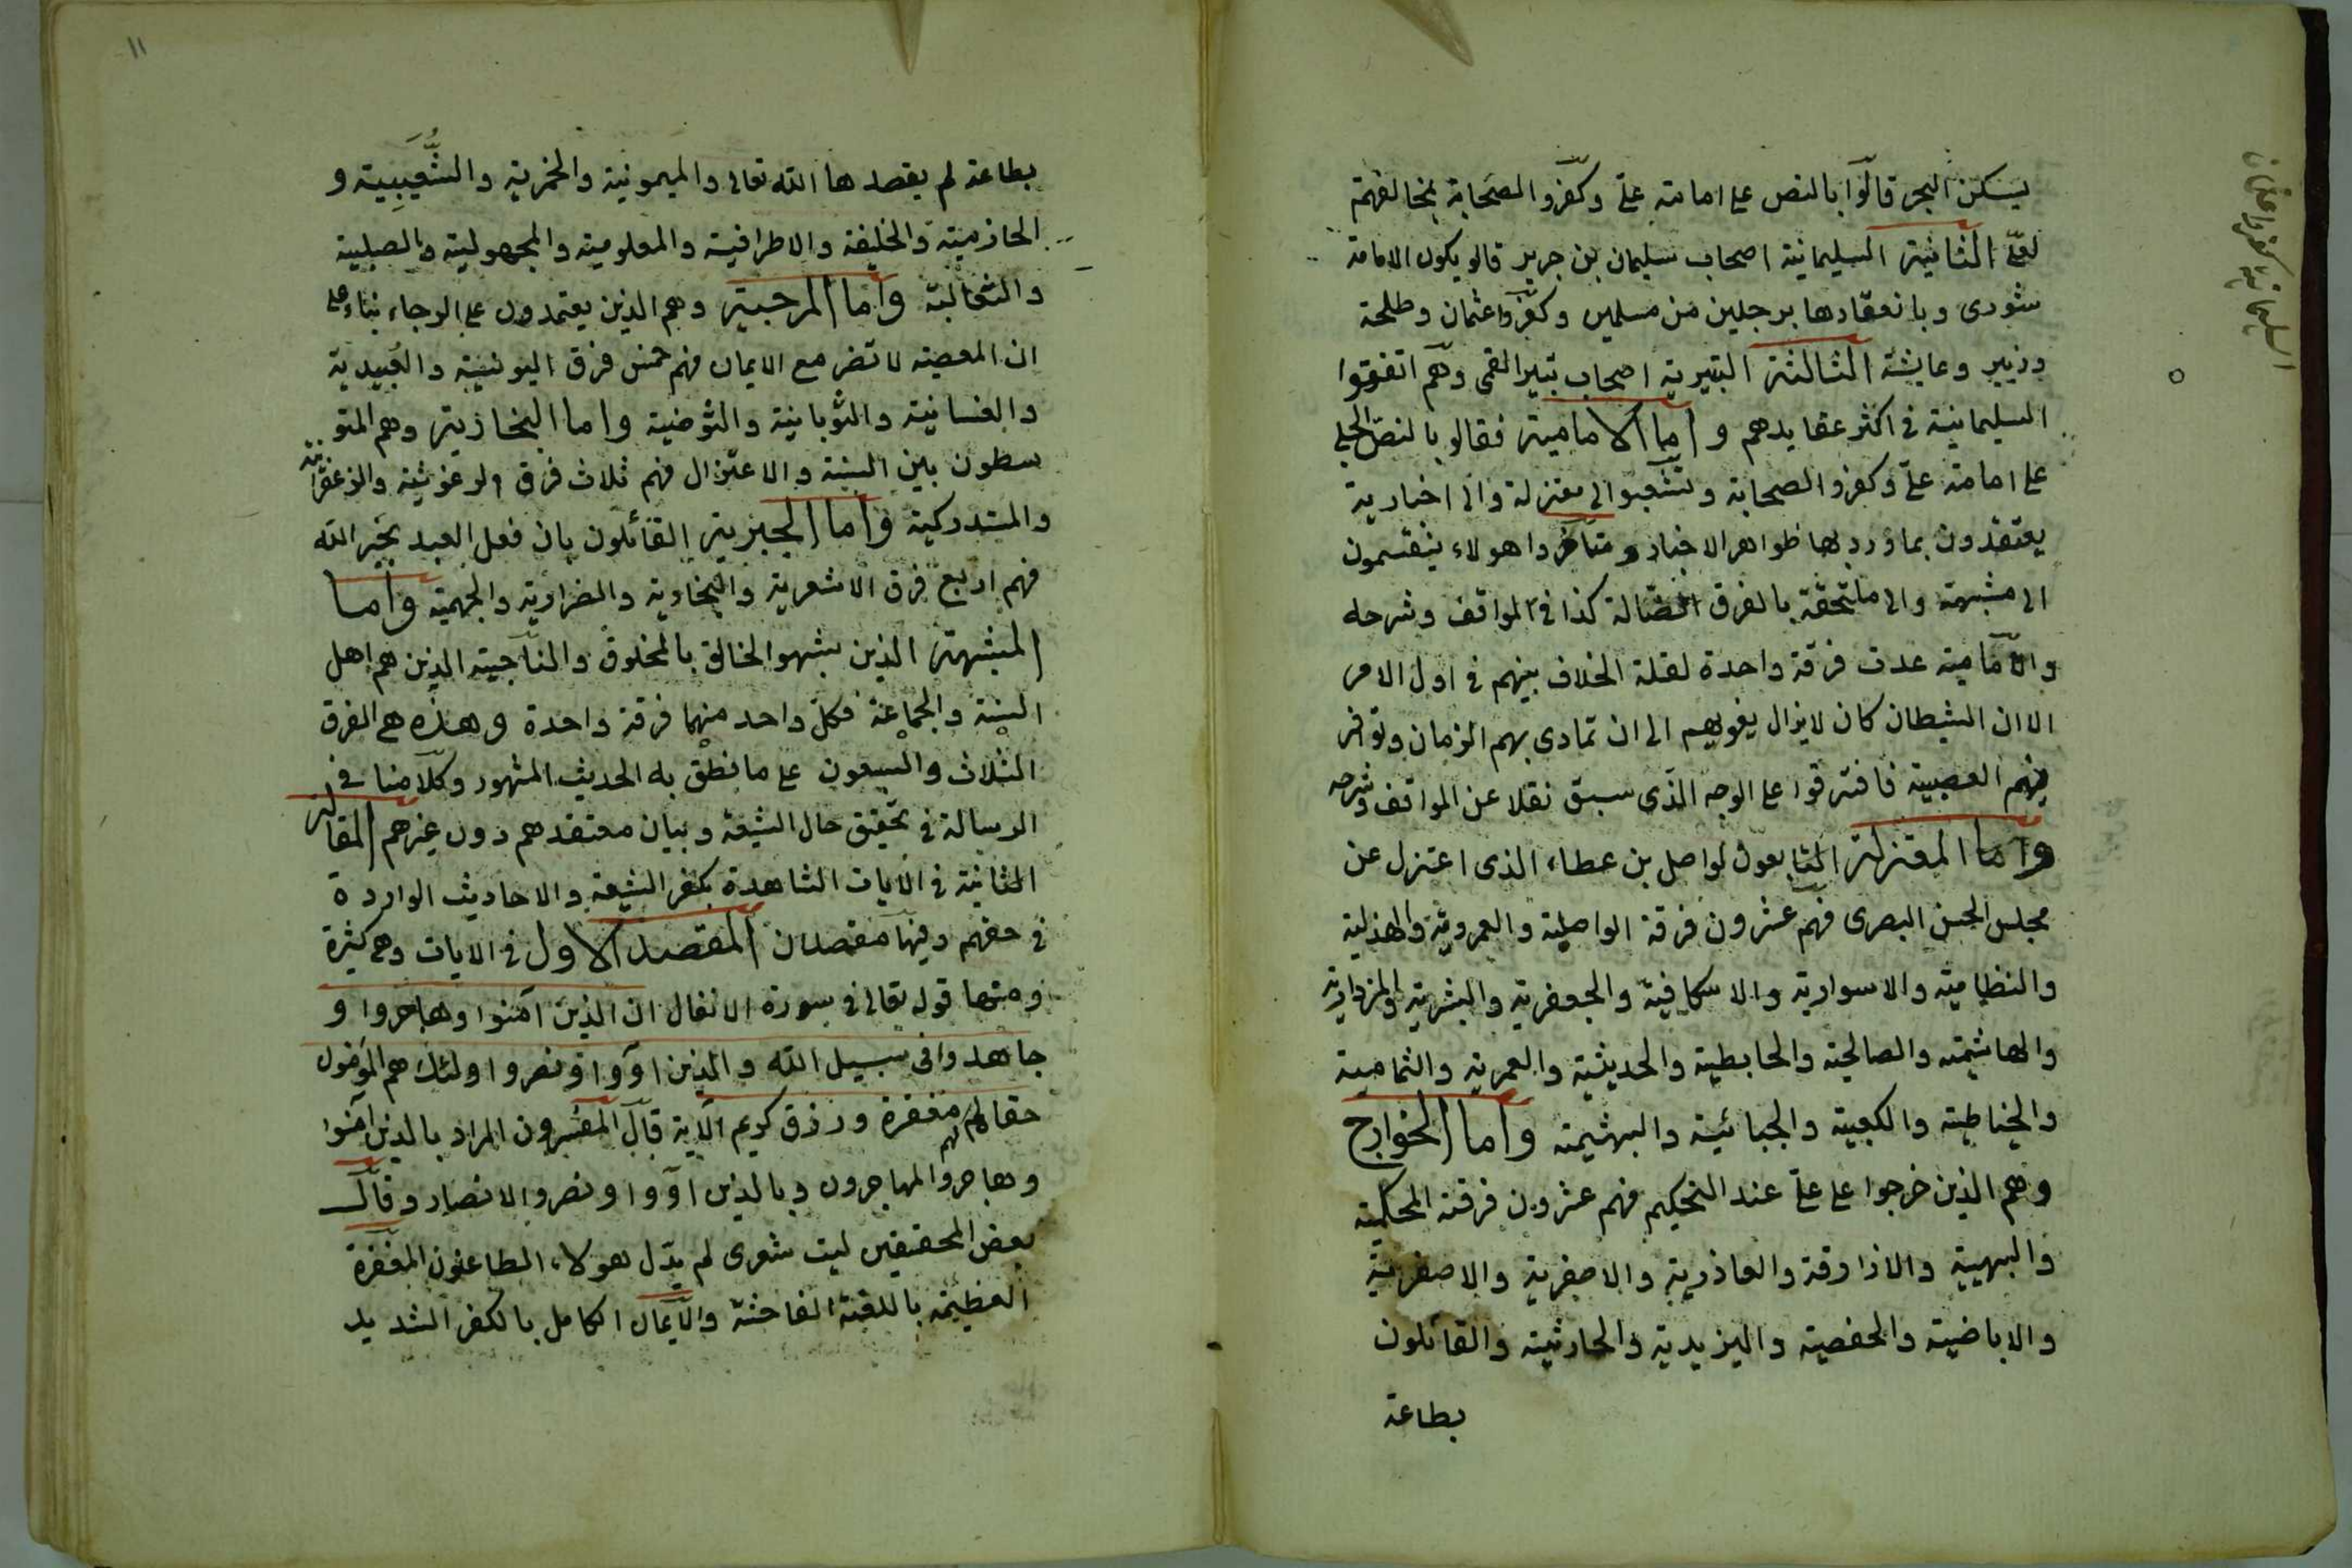 يسكن البحر قالوا بالنص على امامته علىّ وكفّروا الصحابة بمخالفتهم
لعلىّ الثانية السليمانية اصحاب سليمان بن جرير قالو يكون الامامة
شورى وبانعقادها برجلين من مسلمين وكفّروا عثمان وطلحة
وزبير وعايشة الثالثة البتيرية اصحاب بتير القمى وهم اتفقوا
السليمانية فى اكثر عقايدهم واما الامامية فقالو بالنص الجلى
على امامة علىّ وكفرو الصحابة وتشعبوا الى معتزلة والى اخبارية
يعتقدون بما ورد بها ظواهر الاخبار ومتأخروا هولاء ينقسمون
الى مشبهة والى ملتحقة بالفرق الضالة كذا فى المواقف وشرحه
والامامية عدت فرقة واحدة لقلة الخلاف بينهم فى اول الامر
الا ان الشيطان كان لايزال يغويهم الى ان تمادى بهم الزمان وتوافر
فيهم العصبية فافترقوا على الوجه الذى سبق نقلا عن المواقف وشرحه
واما المعتزلة التابعون لواصل بن عطاء الذى اعتزل عن
مجلس الحسن البصرى فهم عشرون فرقة الواصلية والعمروية والهذلية
والنظامية والاسوارية والاسكافية والجعفرية والبشرية والمزدارية
والهاشمية والصالحية والحابطية والحديثية والعمرية والثمامية
والخياطية والكعبية والجبائية والبهشيمة واما الخوارج
وهم الذين خرجوا على علىّ عند التحكيم فهم عشرون فرقة المحكمية
والبهيية والازارقة والعاذرية والاصفرية والاصفرية
والاباضية والحفصية واليزيدية والحارثية والقائلون
بطاعة
١١
بطاعة لم يقصدها الله تعالى والميمونية والحمزية والشُّعَيبِية و
الحازمية والخليفة والاطرافية والمعلومية والمجهولية والصلبية
والثعالبة واما المرجية وهم الذين يعتمدون على الرجاء بناء على
ان المعصية لا تضر مع الايمان فهم خمس فرق اليونسية والعبيدية
والغسانية والثوبانية والثومنية واما النجارية وهم المتو
سطون بين السنة والاعتزال فهم ثلاث فرق الرغوثية والزعفرانية
والمستدركية واما الجبرية القائلون بان فعل العبد بجبر الله
فهم اربع فرق الاشعرية والنجارية والضرارية والجهمية واما
المشبهة الذين يشبهو الخالق بالمخلوق والناجية الذين هم اهل
السنة والجماعة فكل واحد منهما فرقة واحدة وهذه هى الفرق
الثلاث والسبعون على ما نطق به الحديث المشهور وكلامنا فى
الرسالة فى تحقيق حال الشيعة وبيان معتقدهم دون غيرهم المقالة
الثانية فى الآيات الشاهدة بكفر الشيعة والاحاديث الواردة
فى حقهم وفيها مقصدان المقصد الاول فى الايات وهى كثيرة
ومنها قوله تعالى فى سورة الانفال ان الذين آمنوا وهاجروا و
جاهدوا فى سبيل الله والذين اووا ونصروا اولئك هم المؤمنون
حقا لهم مغفرة ورزق كريم الآية قال المفسرون المراد بالذين آمنوا
وهاجروا المهاجرون وبالذين اووا ونصروا الانصار وقال
بعض المحققين ليت شعرى لم بدّل هولاء الطاعنون المغفرة
العظيمة باللعنة الفاحشة والايمان الكامل بالكفر الشديد